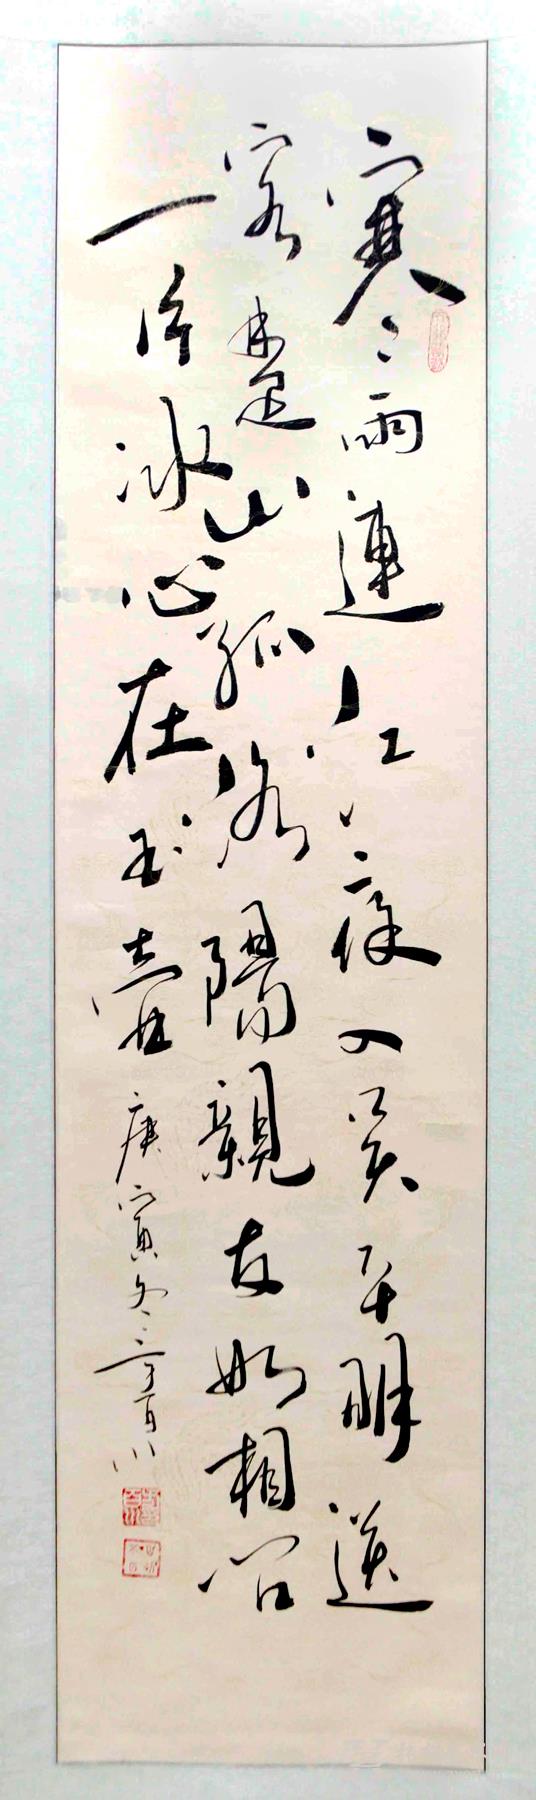 寒雨連江夜入吴平明送
客楚山孤洛陽親友如相问
一片冰心在玉壶庚寅冬方百川